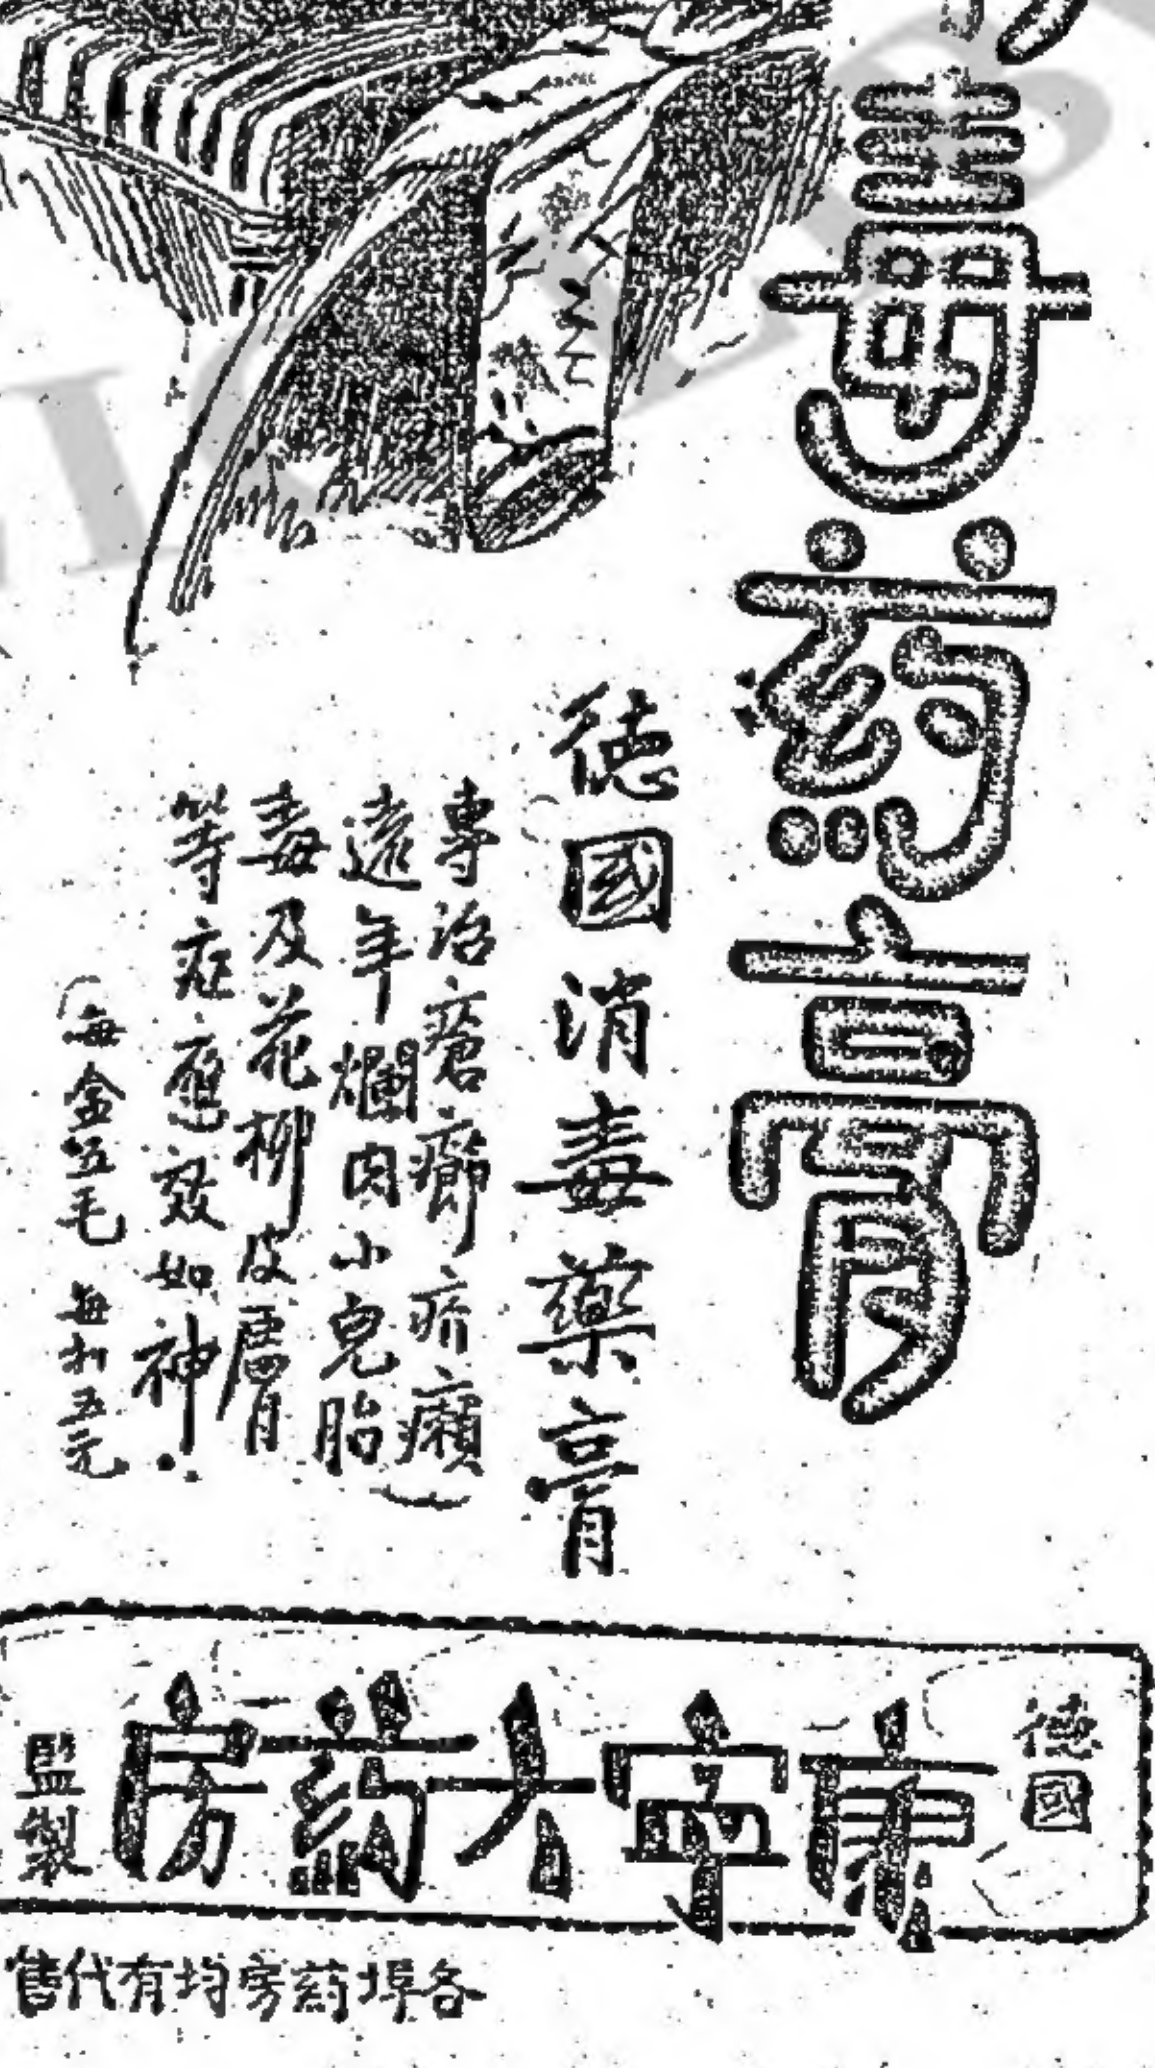 毒药膏
德國消毒藥膏
專治瘡癤疥癩
遠年爛肉小兒胎
毒及花柳皮膚
等症應效如神
每盒五毛 每打五元
德國
康寧大药房
監製
各埠葯房均有代售